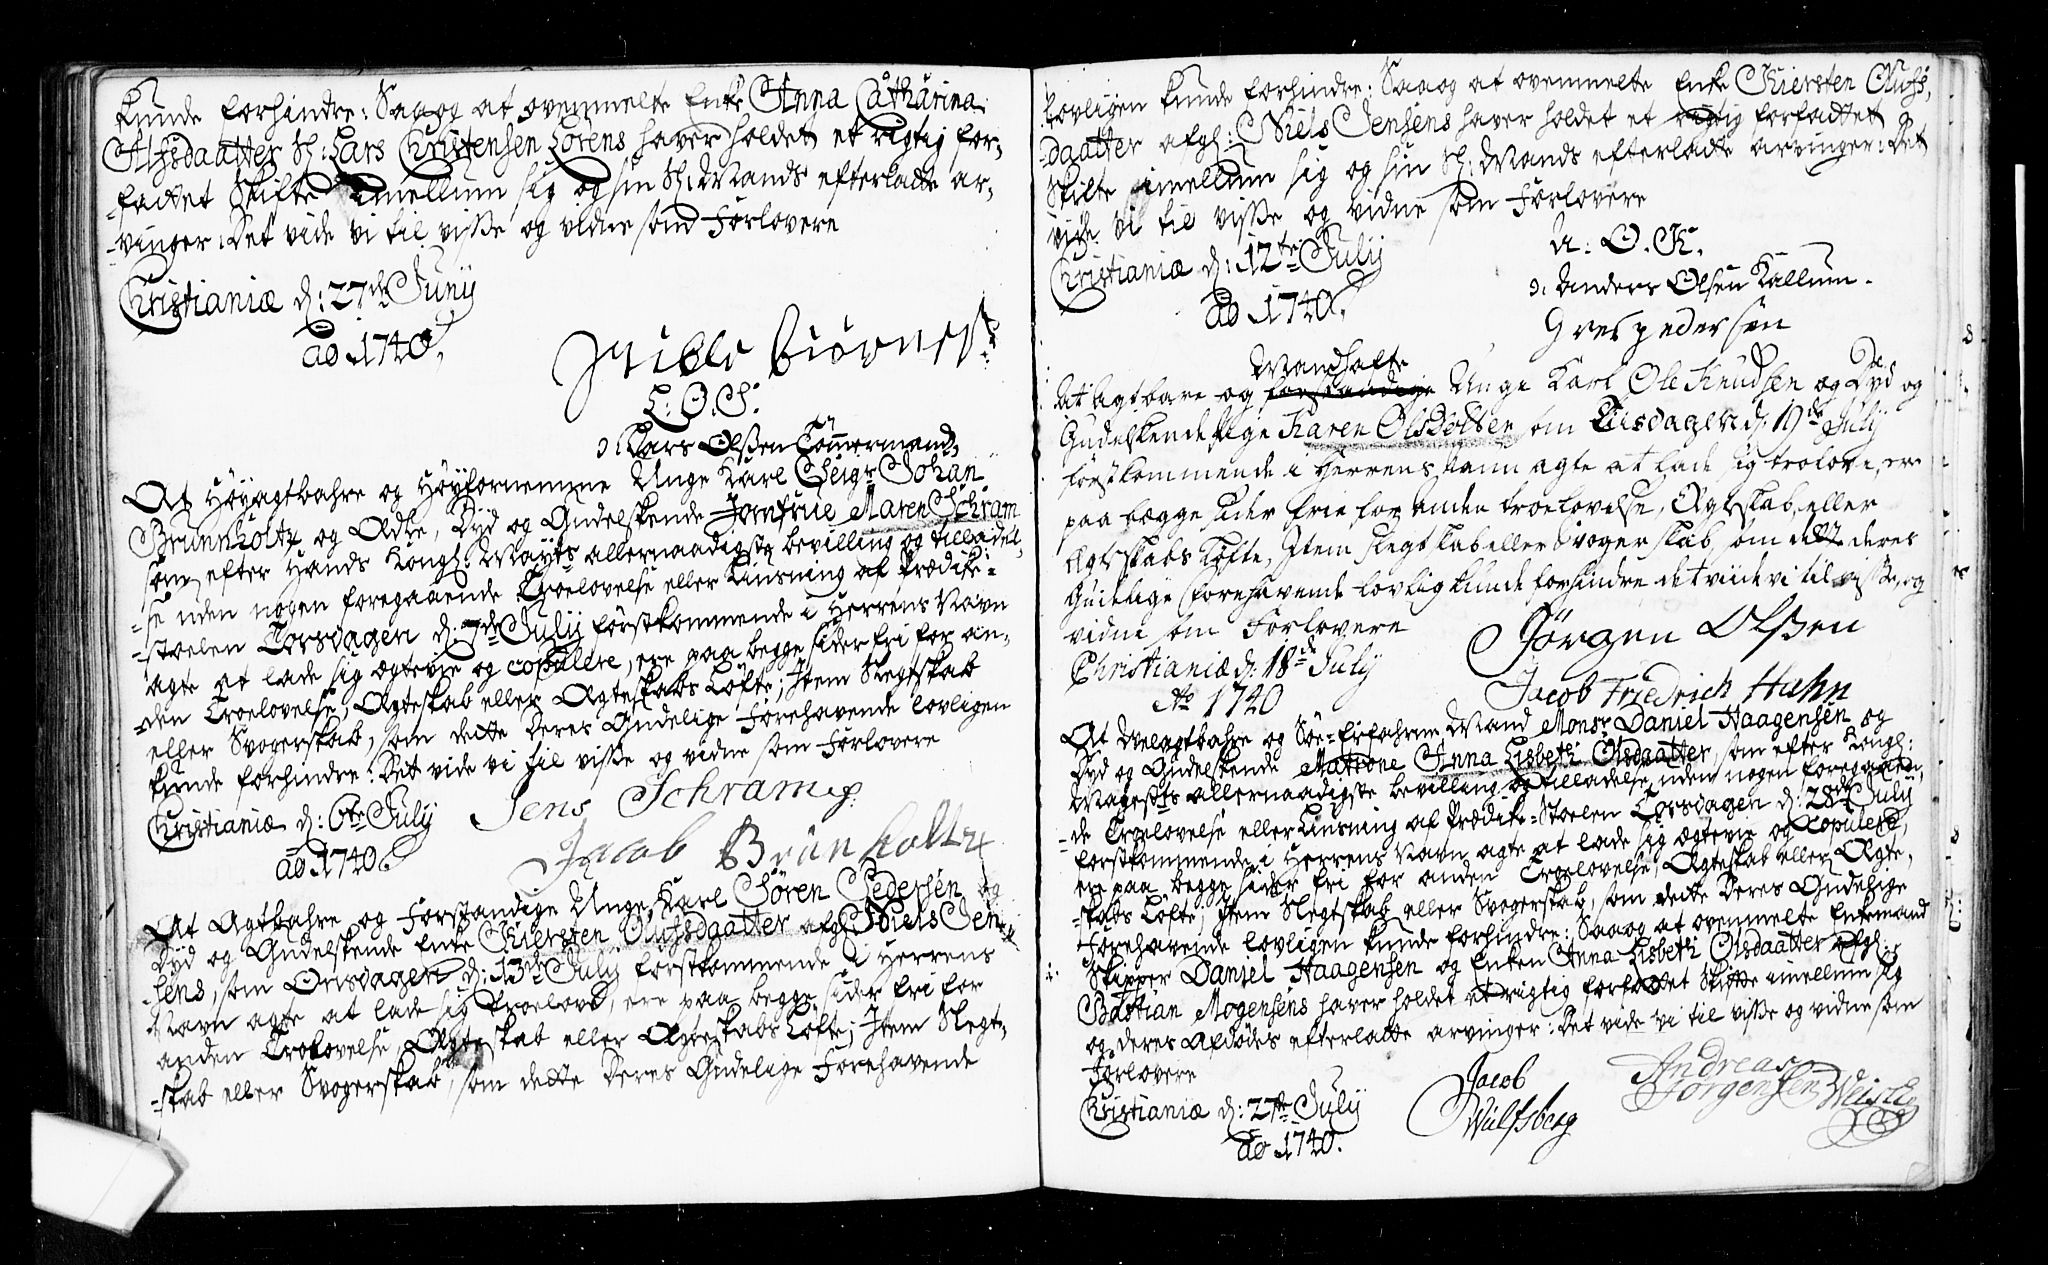 kunde forhindre: Saa og at ovenmelte Enke Anna Catharina
Alfsdaatter Sl: Lars Christensen Lørens haver holdet et rigtig for-
-fattet Skifte imellum sig og sin Sl: Mands efterladte ar-
-vinger: Det vide vi til visse og vidne som Forlovere
Christianiæ d: 27de Juny
ao 1740.
L: O. S.
Lars Olssen Tømmermand
At Høyagtbahre og Høyfornemme Unge Karl Seigr Johan
Brunnholtz og Ædle, Dyd og Gudelskende Jomfrue Maren Schram
som efter Hands Kongl: Mayts allernaadigste bevilling og tilladel-
-se uden nogen foregaaende Troelovelse eller Liusning af Prædike-
-stoelen Torsdagen d: 7de July førstkommende i Herrens Navn
agte at lade sig ægtevie og copulere, ere paa begge sider fri for an-
-den Troelovelse, Ægteskab eller Ægteskabs Løfte; Item Slegtskab
eller Svogerskab, som dette Deres Gudelige Forehavende lovligen
kunde forhindre: Det vide vi til visse og vidne som Forlovere
Christianiæ d: 6te July
Jens Schram
ao 1740.
Jacob Brünholtz
At Agtbahre og Forstandige Unge Karl Søren Pedersen og
Dyd og Gudelskende Enke Kiersten Olufsdaatter afgl: Niels Jen-
-sens, som Onsdagen d: 13de July førstkommende i Herrens
Navn agte at lade sig troelove, ere paa begge sider fri for
anden Troelovelse, Ægteskab eller Ægteskabs Løfte; Item Slegt-
-skab eller Svogerskab, som dette Deres Gudelige Forehavende
lovligen kunde forhindre: Saa og at ovenmelte Enke Kiersten Olufs-
-daatter afgl: Niels Jensens haver holdet et rigtig forfattet
Skifte imellum sig og sin Sl: Mands efterladte arvinger: Det
vide vi til visse og vidne som Forlovere
Christianiæ d: 12te July
A: O. K.
ao 1740.
Anders Olsen Kallum.
Gres pedersen
Mandhafte
At Agtbare og forstandige Unge Karl Ole Knudsen og Dyd og
Gudelskende Pige Karen Olsdatter som Tiisdagen d: 19de July
førstkommende i Herrens Navn agte at lade sig trolove, ere
paa begge sider frie for anden troelovelse, Ægteskab, eller
Ægteskabs Løfte, Item slegtskab eller Svogerskab, som dette deres
Gudelige forehavende lovlig kunde forhindre det viide vi til visse, og
vidne som Forlovere
Jørgen Olssen
Christianiæ d: 18de July
Jacob Friedrich Hahn
Ao 1740
At Velagtbahre og Søe-Erfahrne Mand Monsr Daniel Haagensen og
Dyd og Gudelskende Matrone Anna Lisbeth Olsdaatter, som efter Kongl:
Mayests allernaadigste bevilling og tilladelse, uden nogen foregaaen-
-de Troelovelse eller Liusning af Prædike-Stoelen Torsdagen d: 28de July
førstkommende i Herrens Navn agte at lade sig ægtevie og copulere,
ere paa begge sider fri for anden Troelovelse, Ægteskab eller Ægte-
-skabs Løfte; Item Slegtskab eller Svogerskab, som dette Deres Gudelige
Forehavende lovligen kunde forhindre: Saa og at ovenmelte Enkemand
Skipper Daniel Haagensen og Enken Anna Lisbeth Olsdaatter afgl:
Bastian Mogensens haver holdet et rigtig forfattet Skifte imellum sig
og deres Afdødes efterladte arvinger: Det vide vi til visse og vidne som
Forlovere
Christianiæ d: 27de July
ao 1740.
Jacob
Wulfsberg
Andreas
Jörgensen